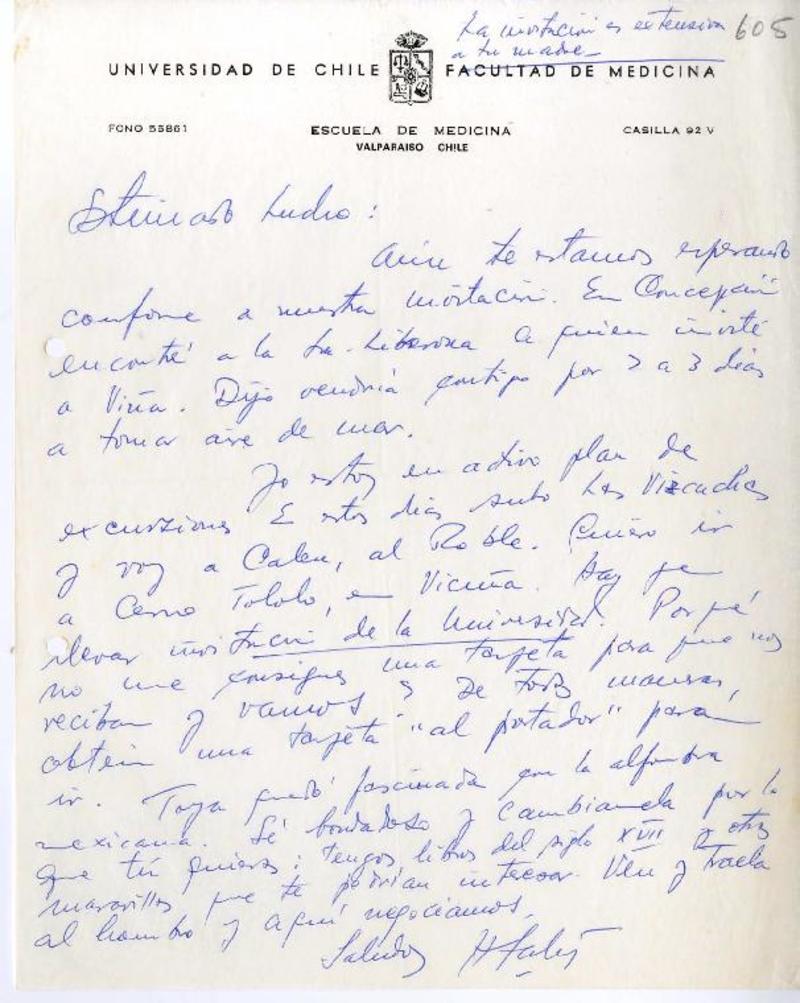 La invitación es extensiva 605
a tu madre
UNIVERSIDAD DE CHILE FACULTAD DE MEDICINA
FONO 55861 ESCUELA DE MEDICINA CASILLA 92 V
VALPARAISO CHILE
Estimado :
Aún te estamos esperando
conforme a nuestra invitación. En Concepción
encontré a la Sra. a quien invité
a Viña. Dijo vendría contigo por 2 a 3 días
a tomar aire de mar.
Yo estoy en activo plan de
excursiones E estos días subo Las Vizcachas
y voy a Caleu, al Roble. Quiero ir
a Cerro Tololo, en Vicuña. Hay que
llevar invitación de la Universidad. Por qué
no me consigues una tarjeta para que nos
reciban y vamos? De todas maneras,
obtén una tarjeta "al portador" para
ir. Toya quedó fascinada con la alfombra
mexicana. Sé bondadoso y cambiamela por lo
que tú quieras; tengo libros del siglo XVII y otras
maravillas que te podrían interesar. Ven y traela
al hombro y aquí negociamos.
Saludos